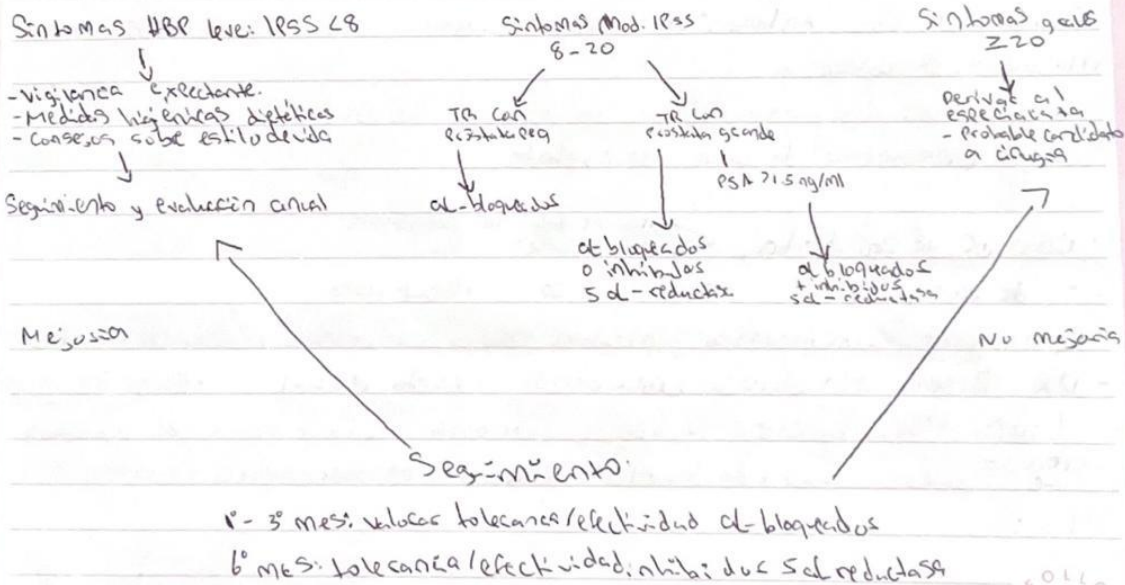 Síntomas HBP leve: IPSS <8
- Vigilancia expectante.
- Medidas higiénicas dietéticas
- Consejos sobre estilo de vida
Seguimiento y evaluación anual
Síntomas Mod. IPSS
8-20
TR con
próstata peq
α-bloqueados
TR con
próstata grande
PSA >1.5 ng/ml
α bloqueados
o inhibidos
5 α-reductasa
α bloqueados
+ inhibidos
5 α-reductasa
Síntomas graves
≥20
Derivar al
especialista
- Probable candidato
a cirugía
Mejoría
No mejoría
Seguimiento:
1º-3º mes: valorar tolerancia/efectividad α-bloqueados
6º mes: tolerancia/efectividad inhibidor 5 α reductasa